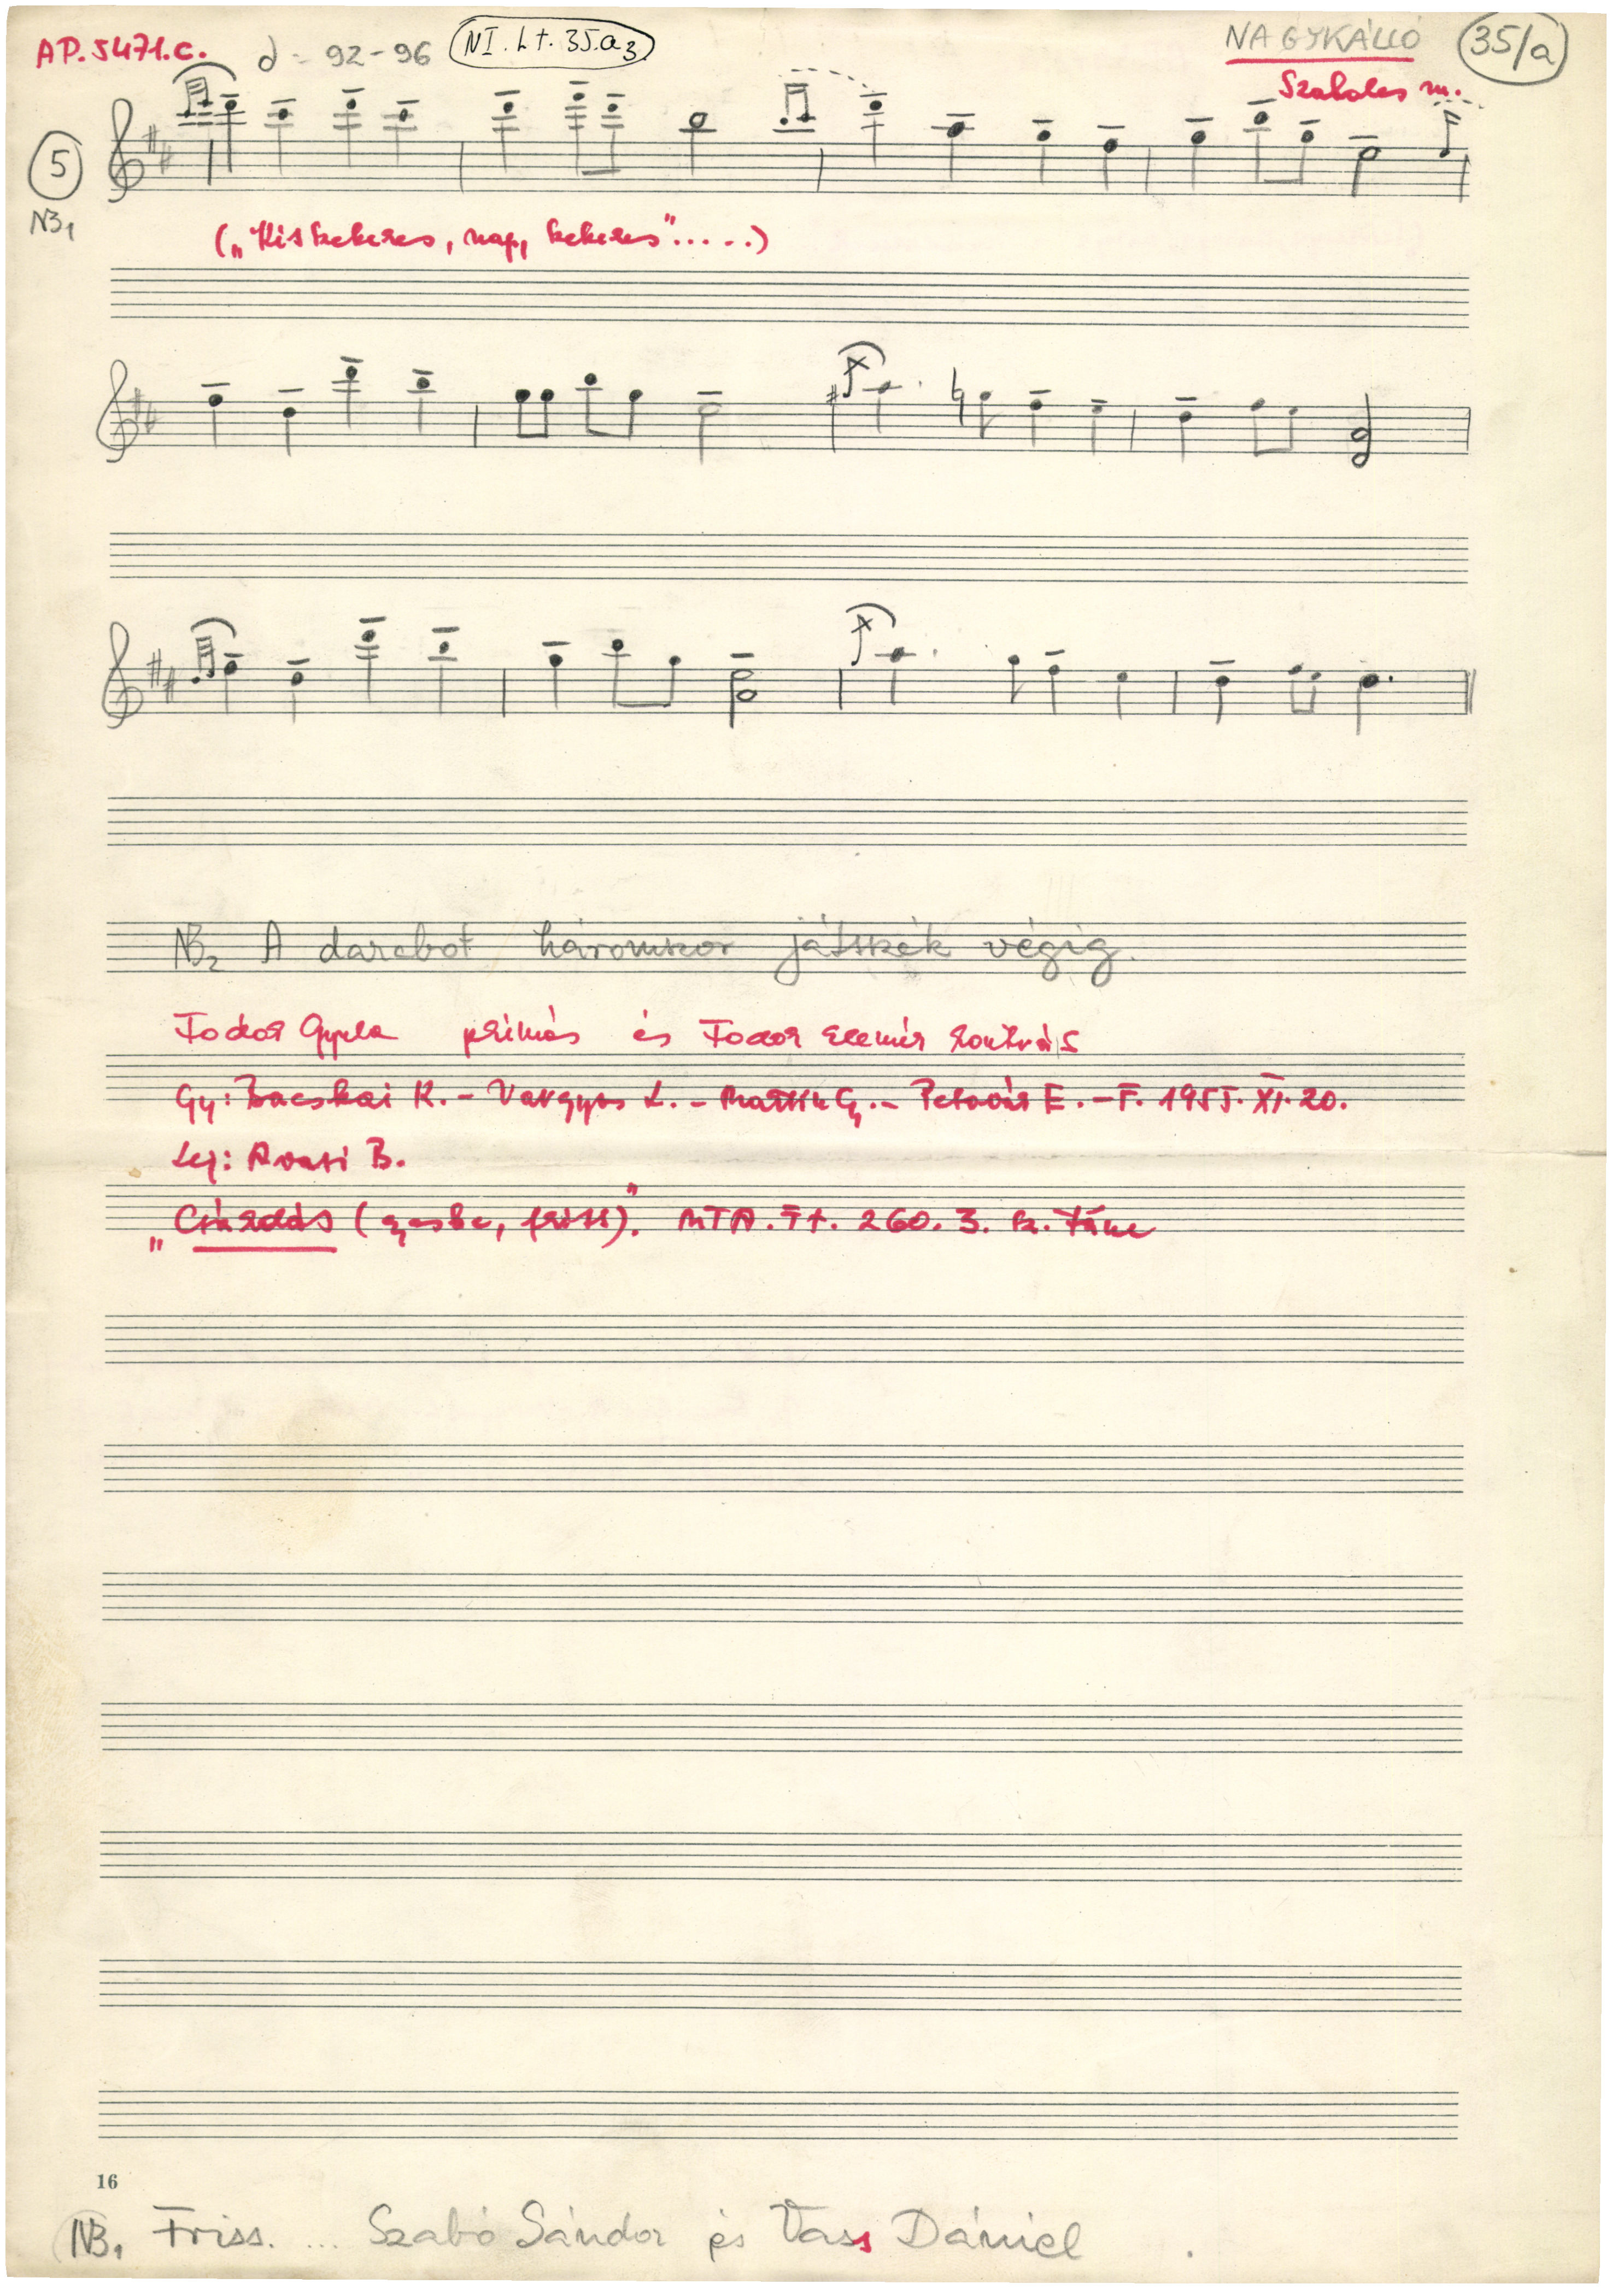 AP. 5471.c.
♩ = 92-96
NI. Lt. 35.a3
NAGYKÁLLÓ
35/a
Szabolcs m.
5
NB1
(„Kis kekeres, nagy kekeres".....)
NB2 A darabot háromszor játszák végig.
Fodor Gyula prímás és Fodor Elemér kontrás
Gy: Bacskai K. - Vargyas L. - Martin Gy. - Pesovár E. - F. 1955. XI. 20.
Lej: Avasi B.
„Csárdás (gyeske, friss)." MTA. Ft. 260. 3. sz. tánc
16
NB1 Friss. ... Szabó Sándor és Vass Dániel